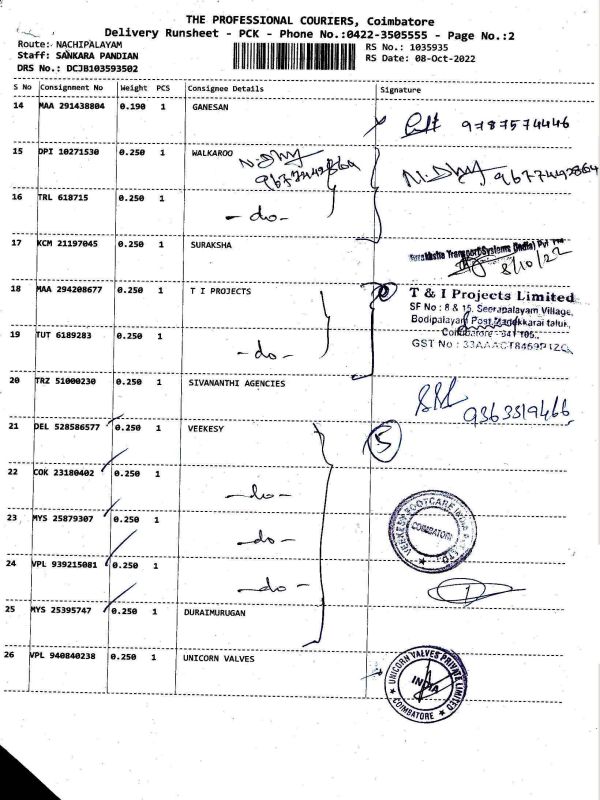 THE PROFESSIONAL COURIERS, Coimbatore
Delivery Runsheet - PCK - Phone No.:0422-3505555 - Page No.:2
Route: NACHIPALAYAM
RS No.: 1035935
Staff: SANKARA PANDIAN
RS Date: 08-Oct-2022
DRS No.: DCJB103593502
S No Consignment No Weight PCS Consignee Details Signature
14 MAA 291438804 0.190 1 GANESAN
9787574446
15 DPI 10271530 0.250 1 WALKAROO
9677492864 9677492864
16 TRL 618715 0.250 1
-do-
17 KCM 21197045 0.250 1 SURAKSHA
Suraksha Transport Systems (India) Pvt
8/10/22
18 MAA 294208677 0.250 1 T I PROJECTS
T & I Projects Limited
SF No : 8 & 15, Seerapalayam Village,
Bodipalayam Post, Madukkarai taluk,
19 TUT 6189283 0.250 1
Coimbatore - 641 105.
-do-
GST No : 33AAACT8469P1ZC
20 TRZ 51000230 0.250 1 SIVANANTHI AGENCIES
9363519466
21 DEL 528586577 0.250 1 VEEKESY
5
22 COK 23180402 0.250 1
-do-
23 MYS 25879307 0.250 1
-do-
VEEKESY FOOTCARE INDIA
COIMBATORE
24 VPL 939215081 0.250 1
-do-
25 MYS 25395747 0.250 1 DURAIMURUGAN
26 VPL 940840238 0.250 1 UNICORN VALVES
UNICORN VALVES PRIVATE LIMITED
INDIA
COIMBATORE